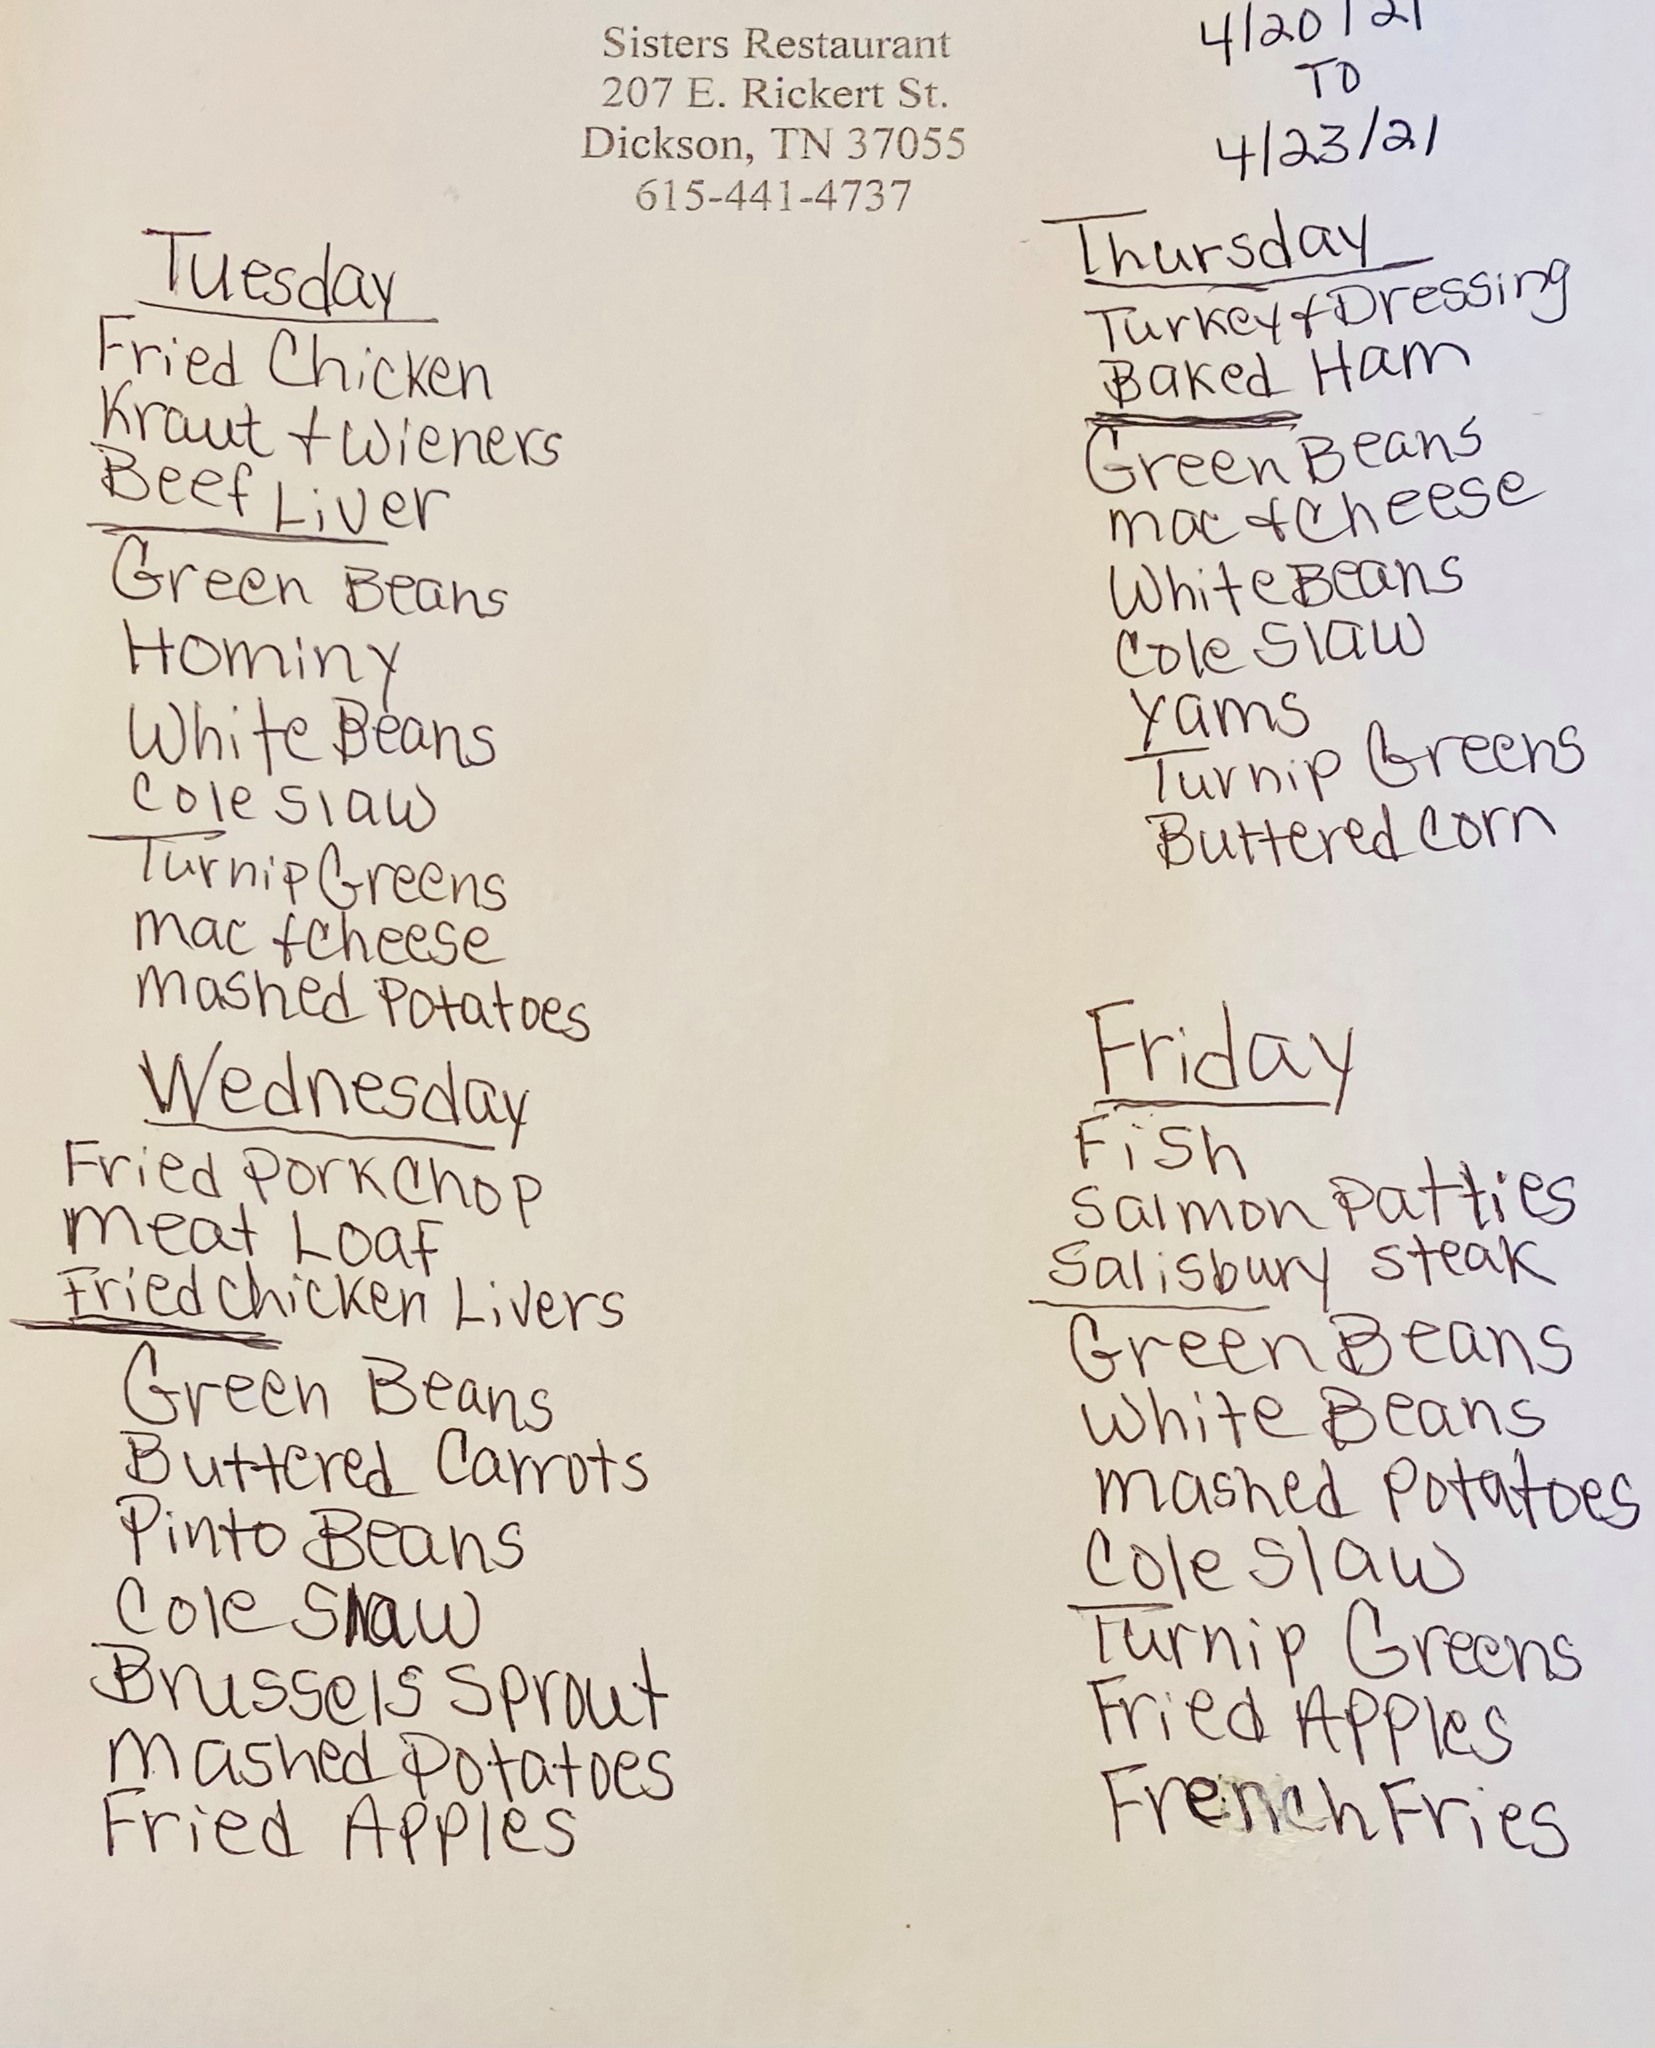 Sisters Restaurant
207 E. Rickert St.
Dickson, TN 37055
615-441-4737
4/20/21
TO
4/23/21
Tuesday
Fried Chicken
Kraut & Wieners
Beef Liver
Green Beans
Hominy
White Beans
Cole Slaw
Turnip Greens
Mac & Cheese
Mashed Potatoes
Wednesday
Fried Pork Chop
Meat Loaf
Fried Chicken Livers
Green Beans
Buttered Carrots
Pinto Beans
Cole Slaw
Brussels Sprout
Mashed Potatoes
Fried Apples
Thursday
Turkey & Dressing
Baked Ham
Green Beans
Mac & Cheese
White Beans
Cole Slaw
Yams
Turnip Greens
Buttered Corn
Friday
Fish
Salmon Patties
Salisbury Steak
Green Beans
White Beans
Mashed Potatoes
Cole Slaw
Turnip Greens
Fried Apples
French Fries